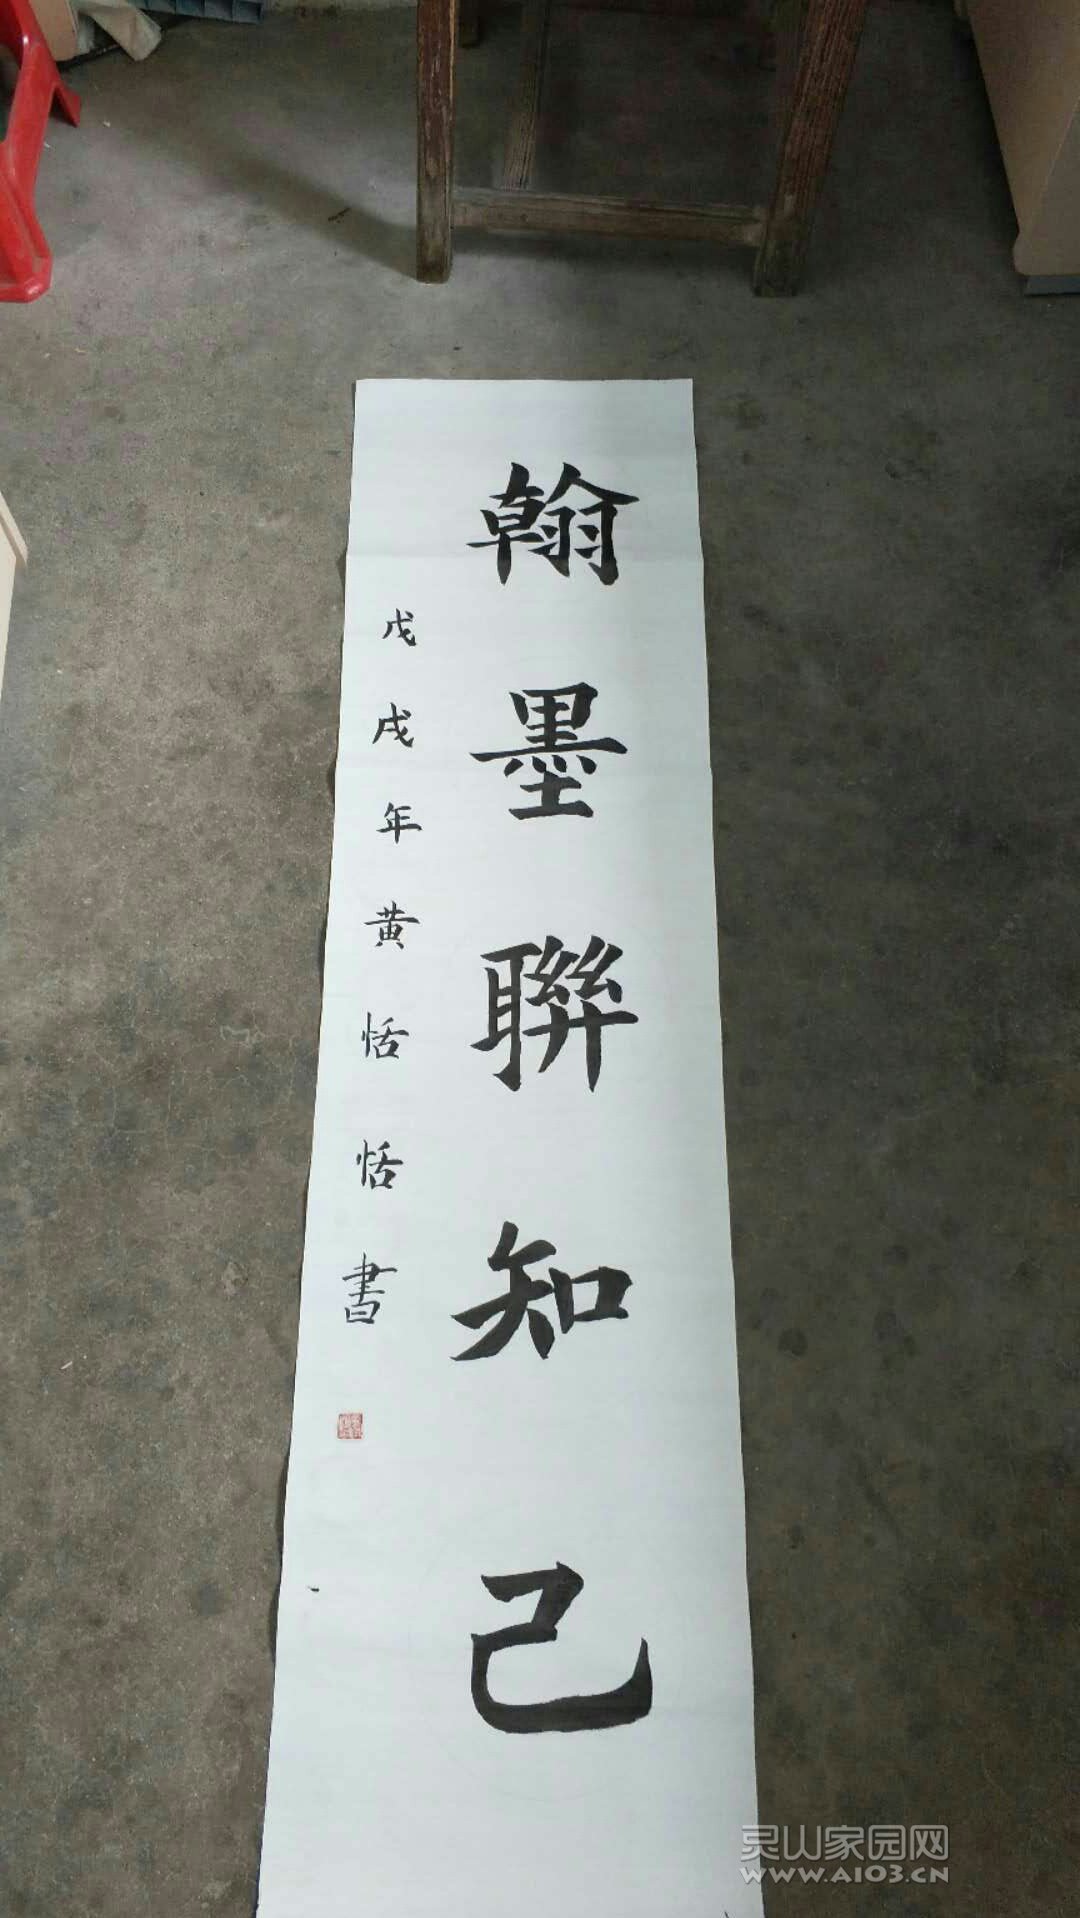 翰墨聯知己
戊戌年黄恬恬書
灵山家园网
WWW.AI03.CN